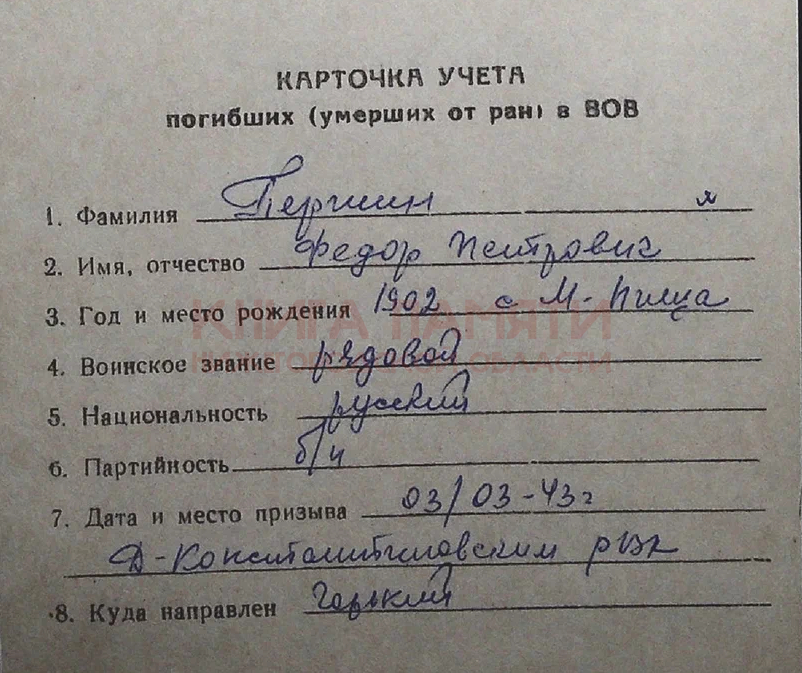 КАРТОЧКА УЧЕТА
погибших (умерших от ран) в ВОВ
1. Фамилия Першин я
2. Имя, отчество Федор Петрович
3. Год и место рождения 1902 с М-Пица
КНИГА ПАМЯТИ
4. Воинское звание рядовой
НИЖЕГОРОДСКОЙ ОБЛАСТИ
5. Национальность русский
6. Партийность б/п
7. Дата и место призыва 03/03-43г
Д-Константиновским рвк
8. Куда направлен Горький